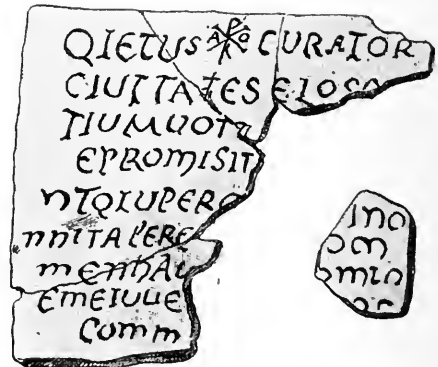 QIETUS A☧ω CURATOR
CIUITATES ELOSO
TIUMUOTU
EPROMISIT
NTQIUPERO
NNITALERE
MENHAL
EMEIULE
COMM
INO
OM
OMIN